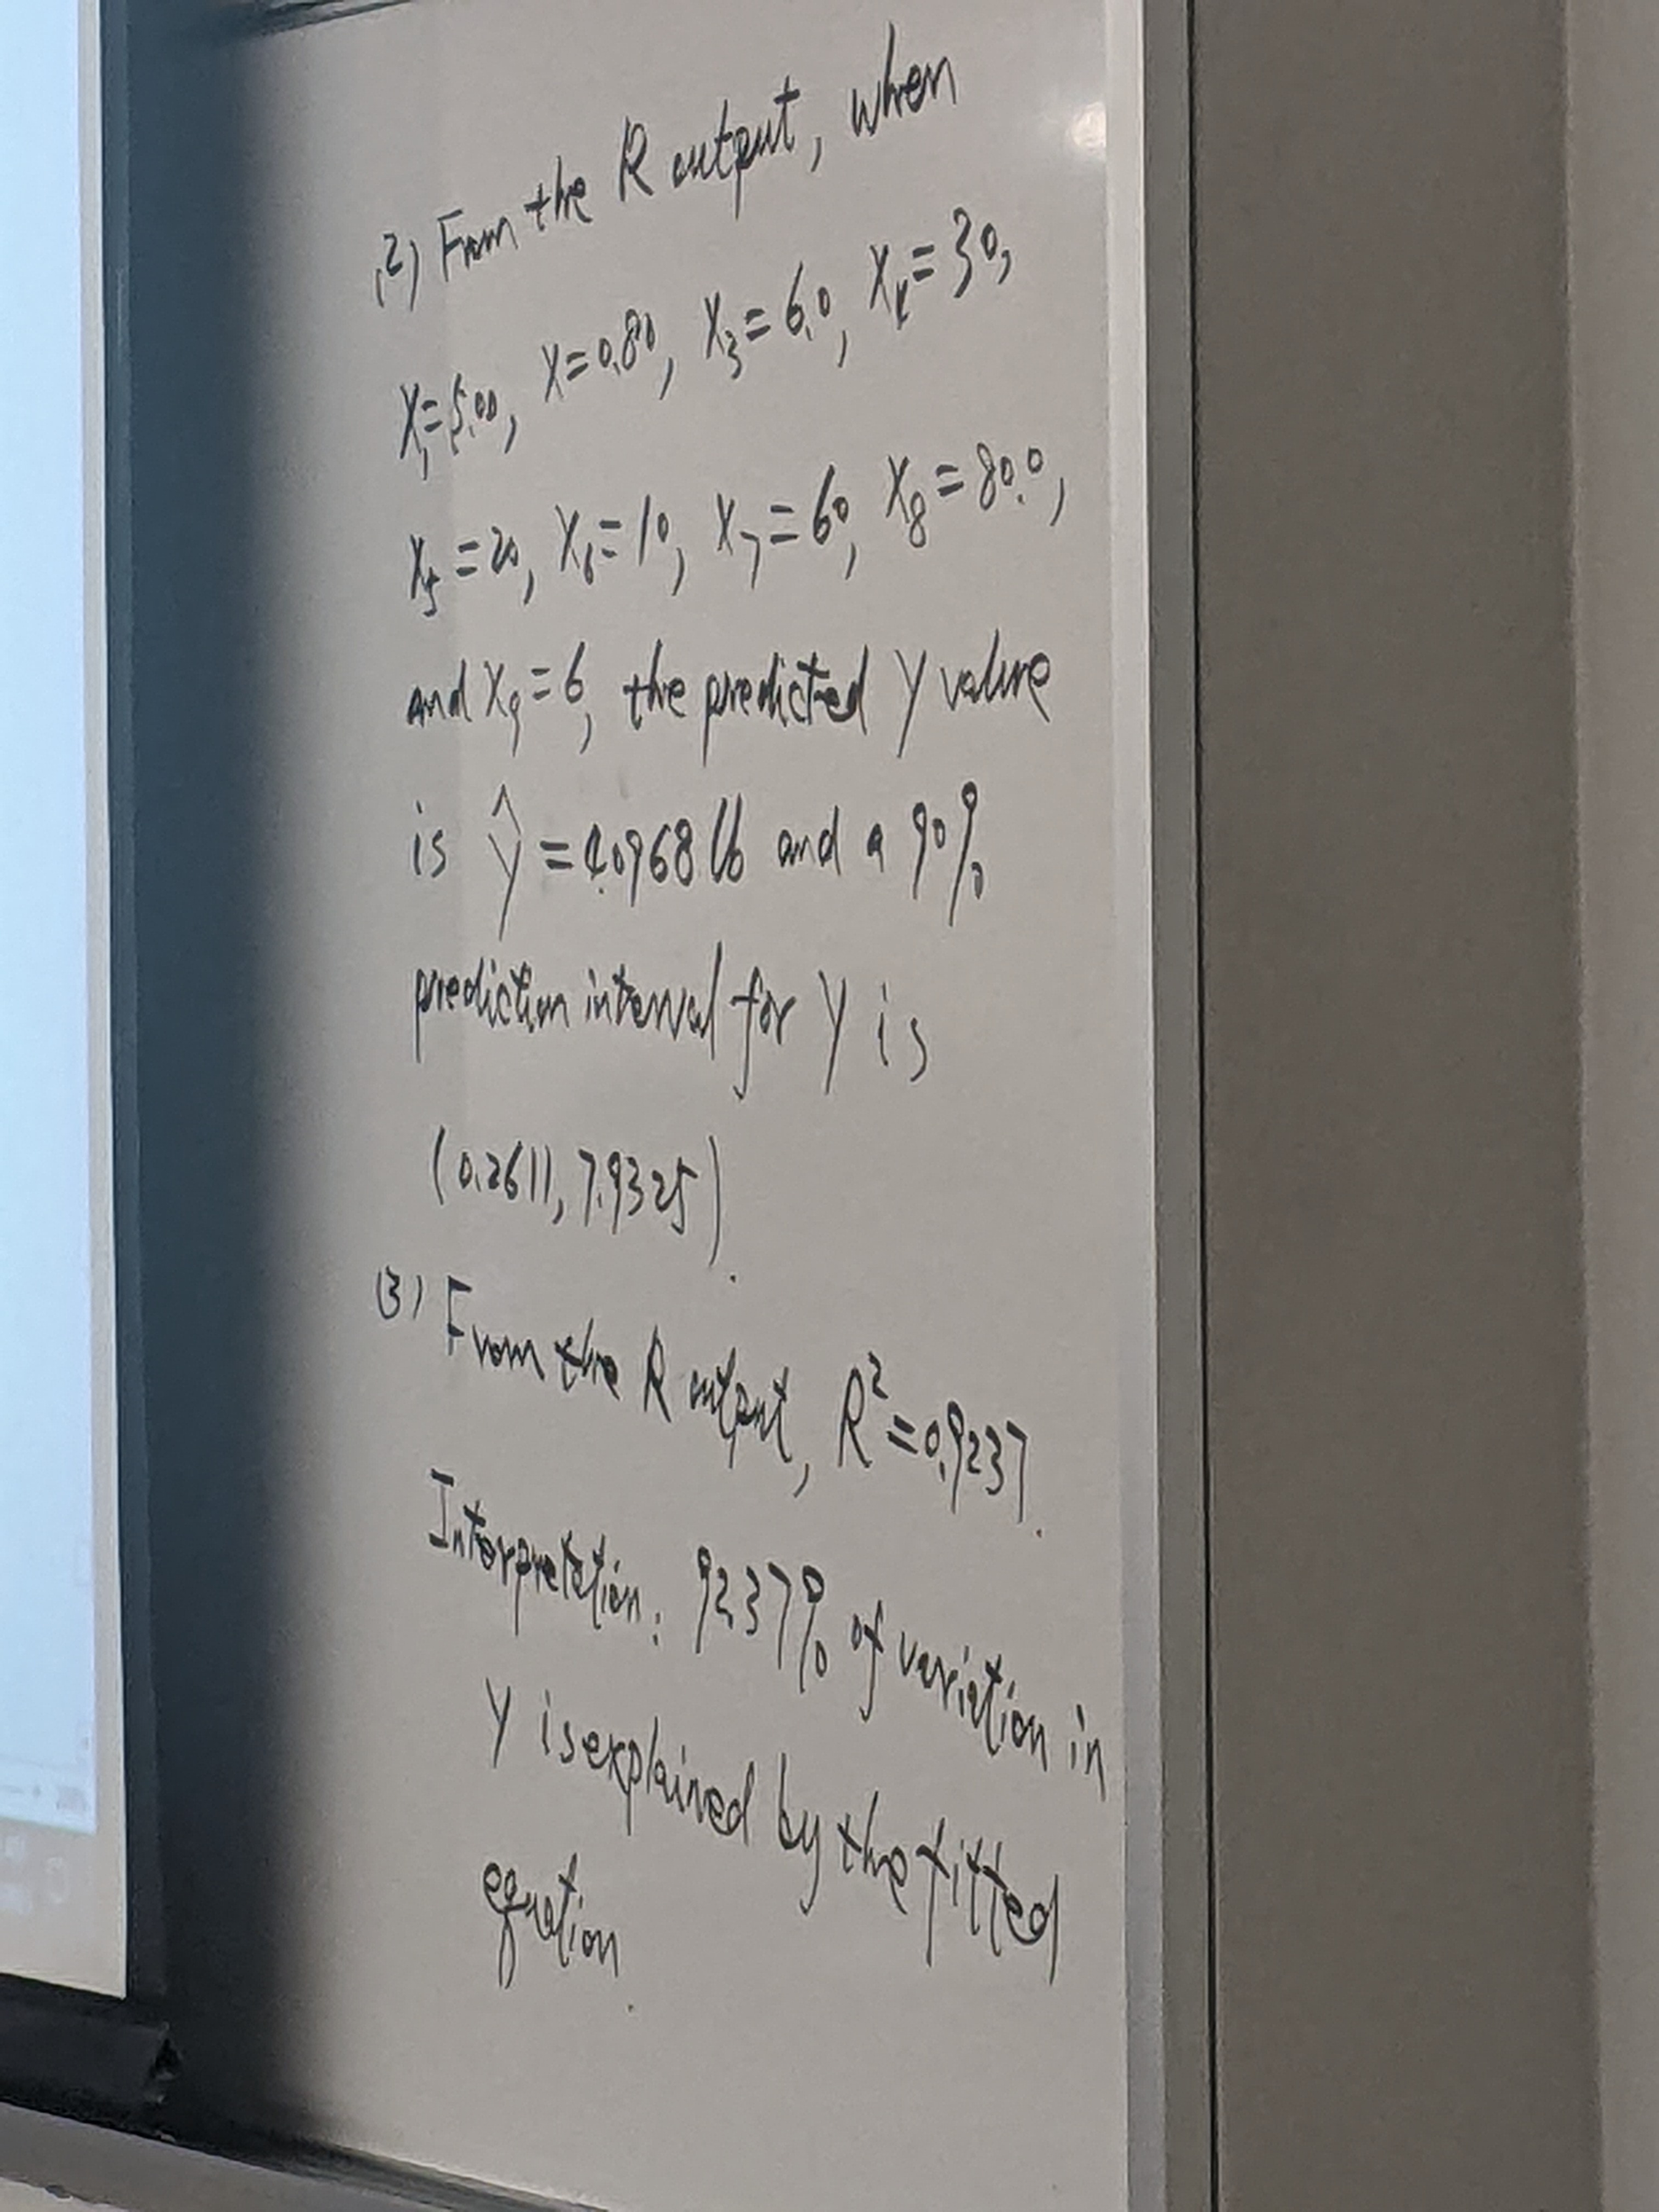 (2) From the R output, when
X₁=5.00, X=0.80, X₃=6.0, X₄=30,
X₅=20, X₆=10, X₇=60, X₈=80.0,
and X₉=6, the predicted Y value
is Ŷ=4.0968 lb and a 90%
prediction interval for Y is
(0.2611, 7.9325).
(3) From the R output, R²=0.9237.
Interpretation: 92.37% of variation in
Y is explained by the fitted
equation.